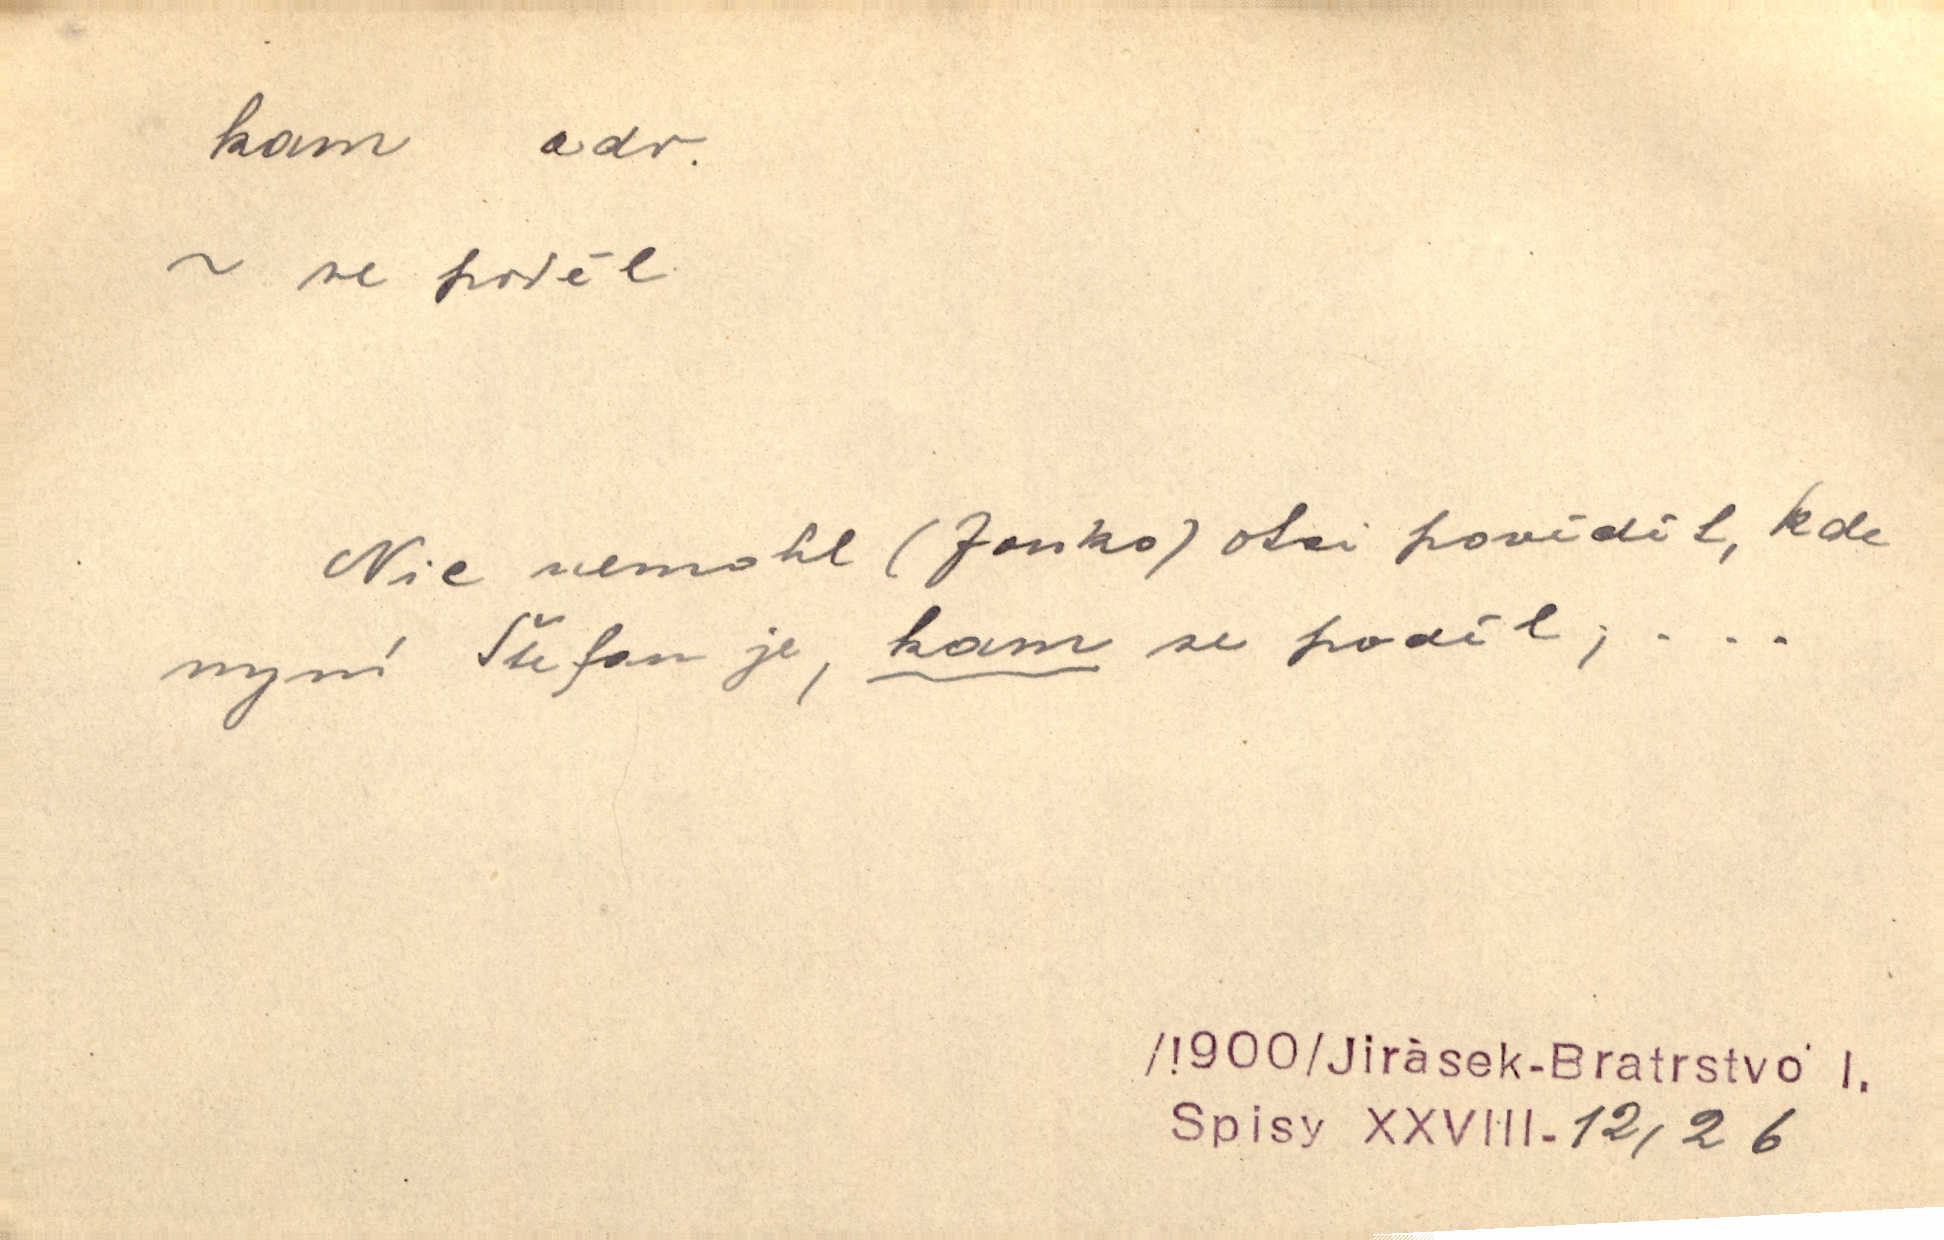 kam adv.
~ se poděl
Nic nemohl (Janko) otci pověděti, kde
nyní Štefan je, kam se poděl; ...
/1900/Jirásek-Bratrstvo I.
Spisy XXVIII-12, 26